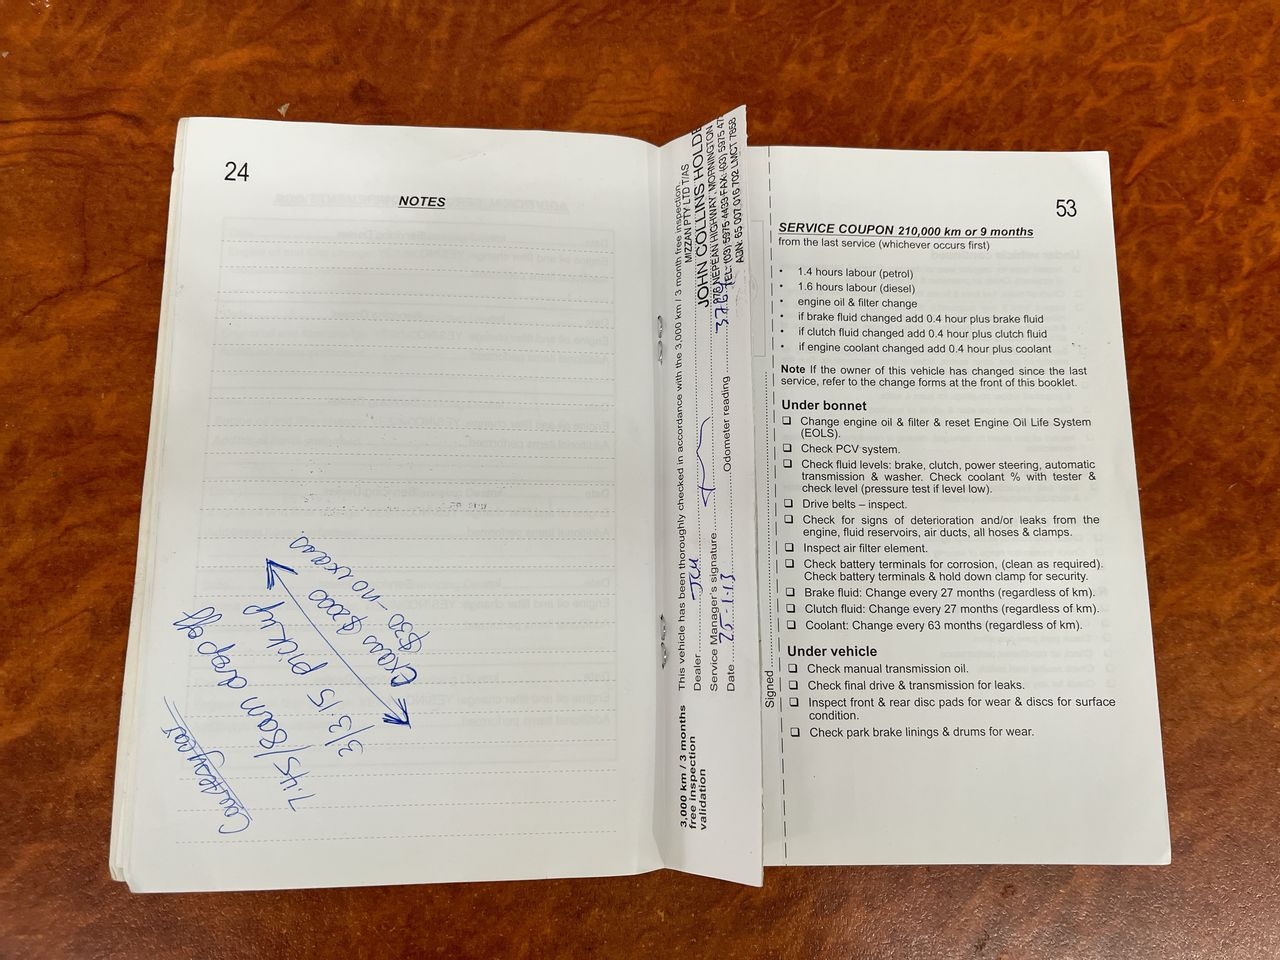 24
NOTES
Courtesy car
7.45/8am drop off
3/3/15 pick up
excess $2000
$30 - no excess
3,000 km / 3 months
free inspection
validation
This vehicle has been thoroughly checked in accordance with the 3,000 km / 3 month free inspection.
Dealer
Service Manager's signature
Date 25.1.13 Odometer reading
MIZZAN PTY LTD T/AS
JOHN COLLINS HOLDE
NEPEAN HIGHWAY, MORNINGTON
TEL: (03) 5975 4433 FAX: (03) 5975 47
65 007 016 702 LMCT 7858
Signed
53
SERVICE COUPON 210,000 km or 9 months
from the last service (whichever occurs first)
• 1.4 hours labour (petrol)
• 1.6 hours labour (diesel)
• engine oil & filter change
• if brake fluid changed add 0.4 hour plus brake fluid
• if clutch fluid changed add 0.4 hour plus clutch fluid
• if engine coolant changed add 0.4 hour plus coolant
Note If the owner of this vehicle has changed since the last
service, refer to the change forms at the front of this booklet.
Under bonnet
❑ Change engine oil & filter & reset Engine Oil Life System
(EOLS).
❑ Check PCV system.
❑ Check fluid levels: brake, clutch, power steering, automatic
transmission & washer. Check coolant % with tester &
check level (pressure test if level low).
❑ Drive belts – inspect.
❑ Check for signs of deterioration and/or leaks from the
engine, fluid reservoirs, air ducts, all hoses & clamps.
❑ Inspect air filter element.
❑ Check battery terminals for corrosion, (clean as required).
Check battery terminals & hold down clamp for security.
❑ Brake fluid: Change every 27 months (regardless of km).
❑ Clutch fluid: Change every 27 months (regardless of km).
❑ Coolant: Change every 63 months (regardless of km).
Under vehicle
❑ Check manual transmission oil.
❑ Check final drive & transmission for leaks.
❑ Inspect front & rear disc pads for wear & discs for surface
condition.
❑ Check park brake linings & drums for wear.